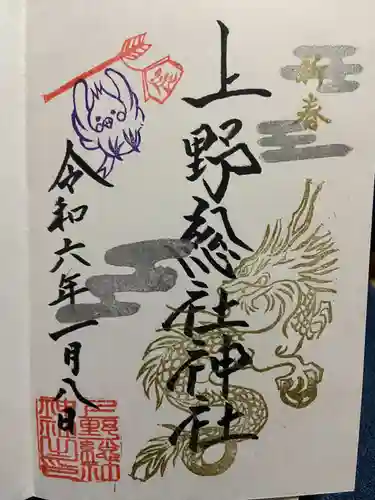 新春
上野総社神社
令和六年一月八日
上野総社
神社之印